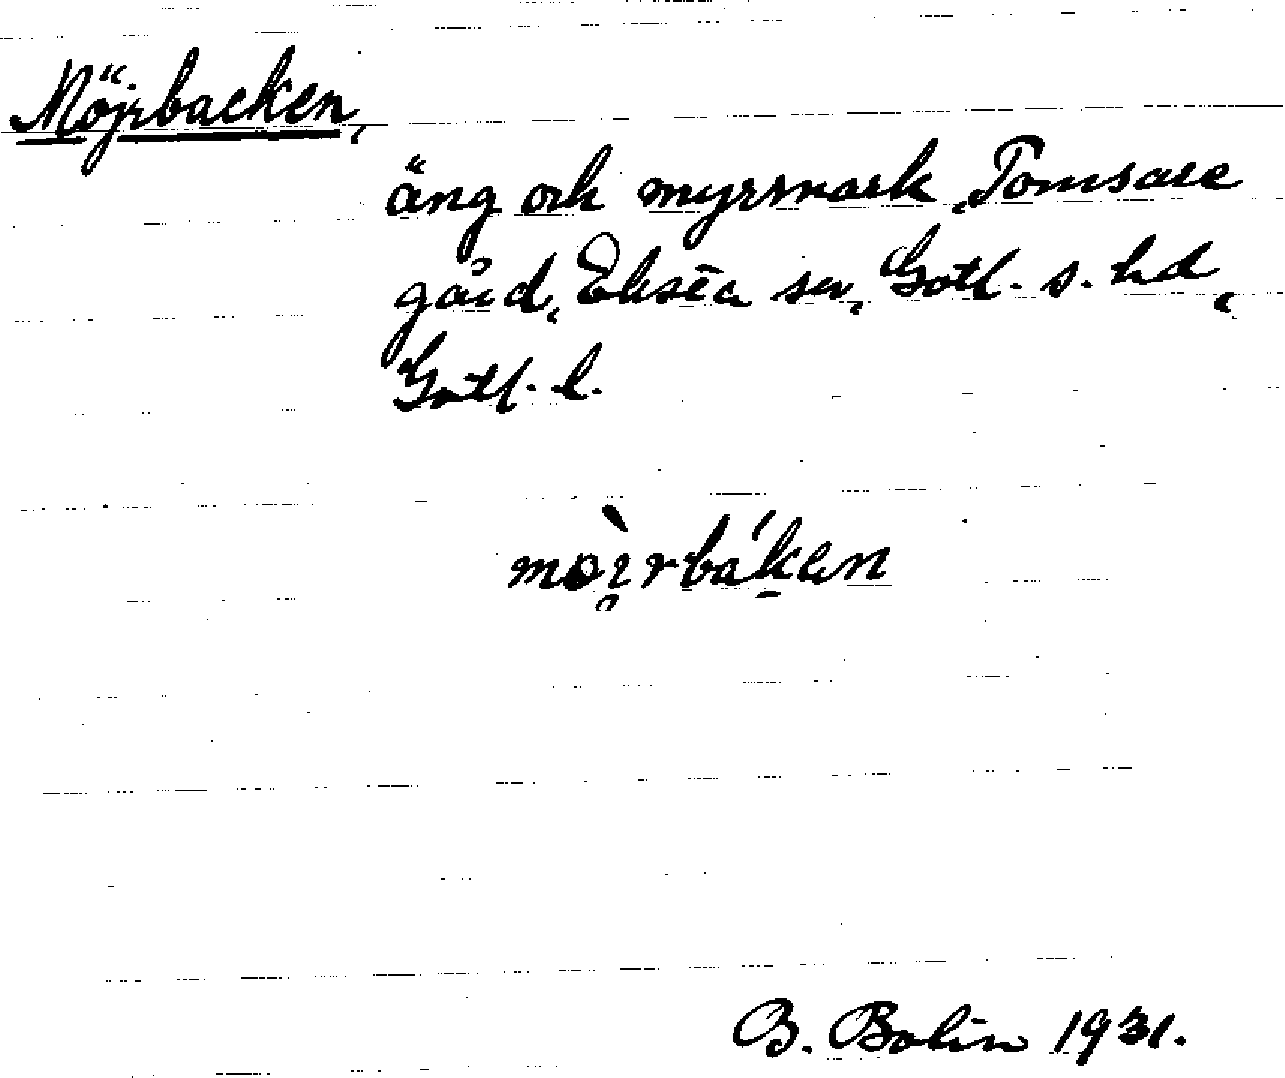 Möjrbacken,
äng och myrsmark, Tomsare
gård, Eksta sn, Gotl. s. hd,
Gotl. l.
mɔ̀ɪ̯rbák̠en
B. Bolin 1931.